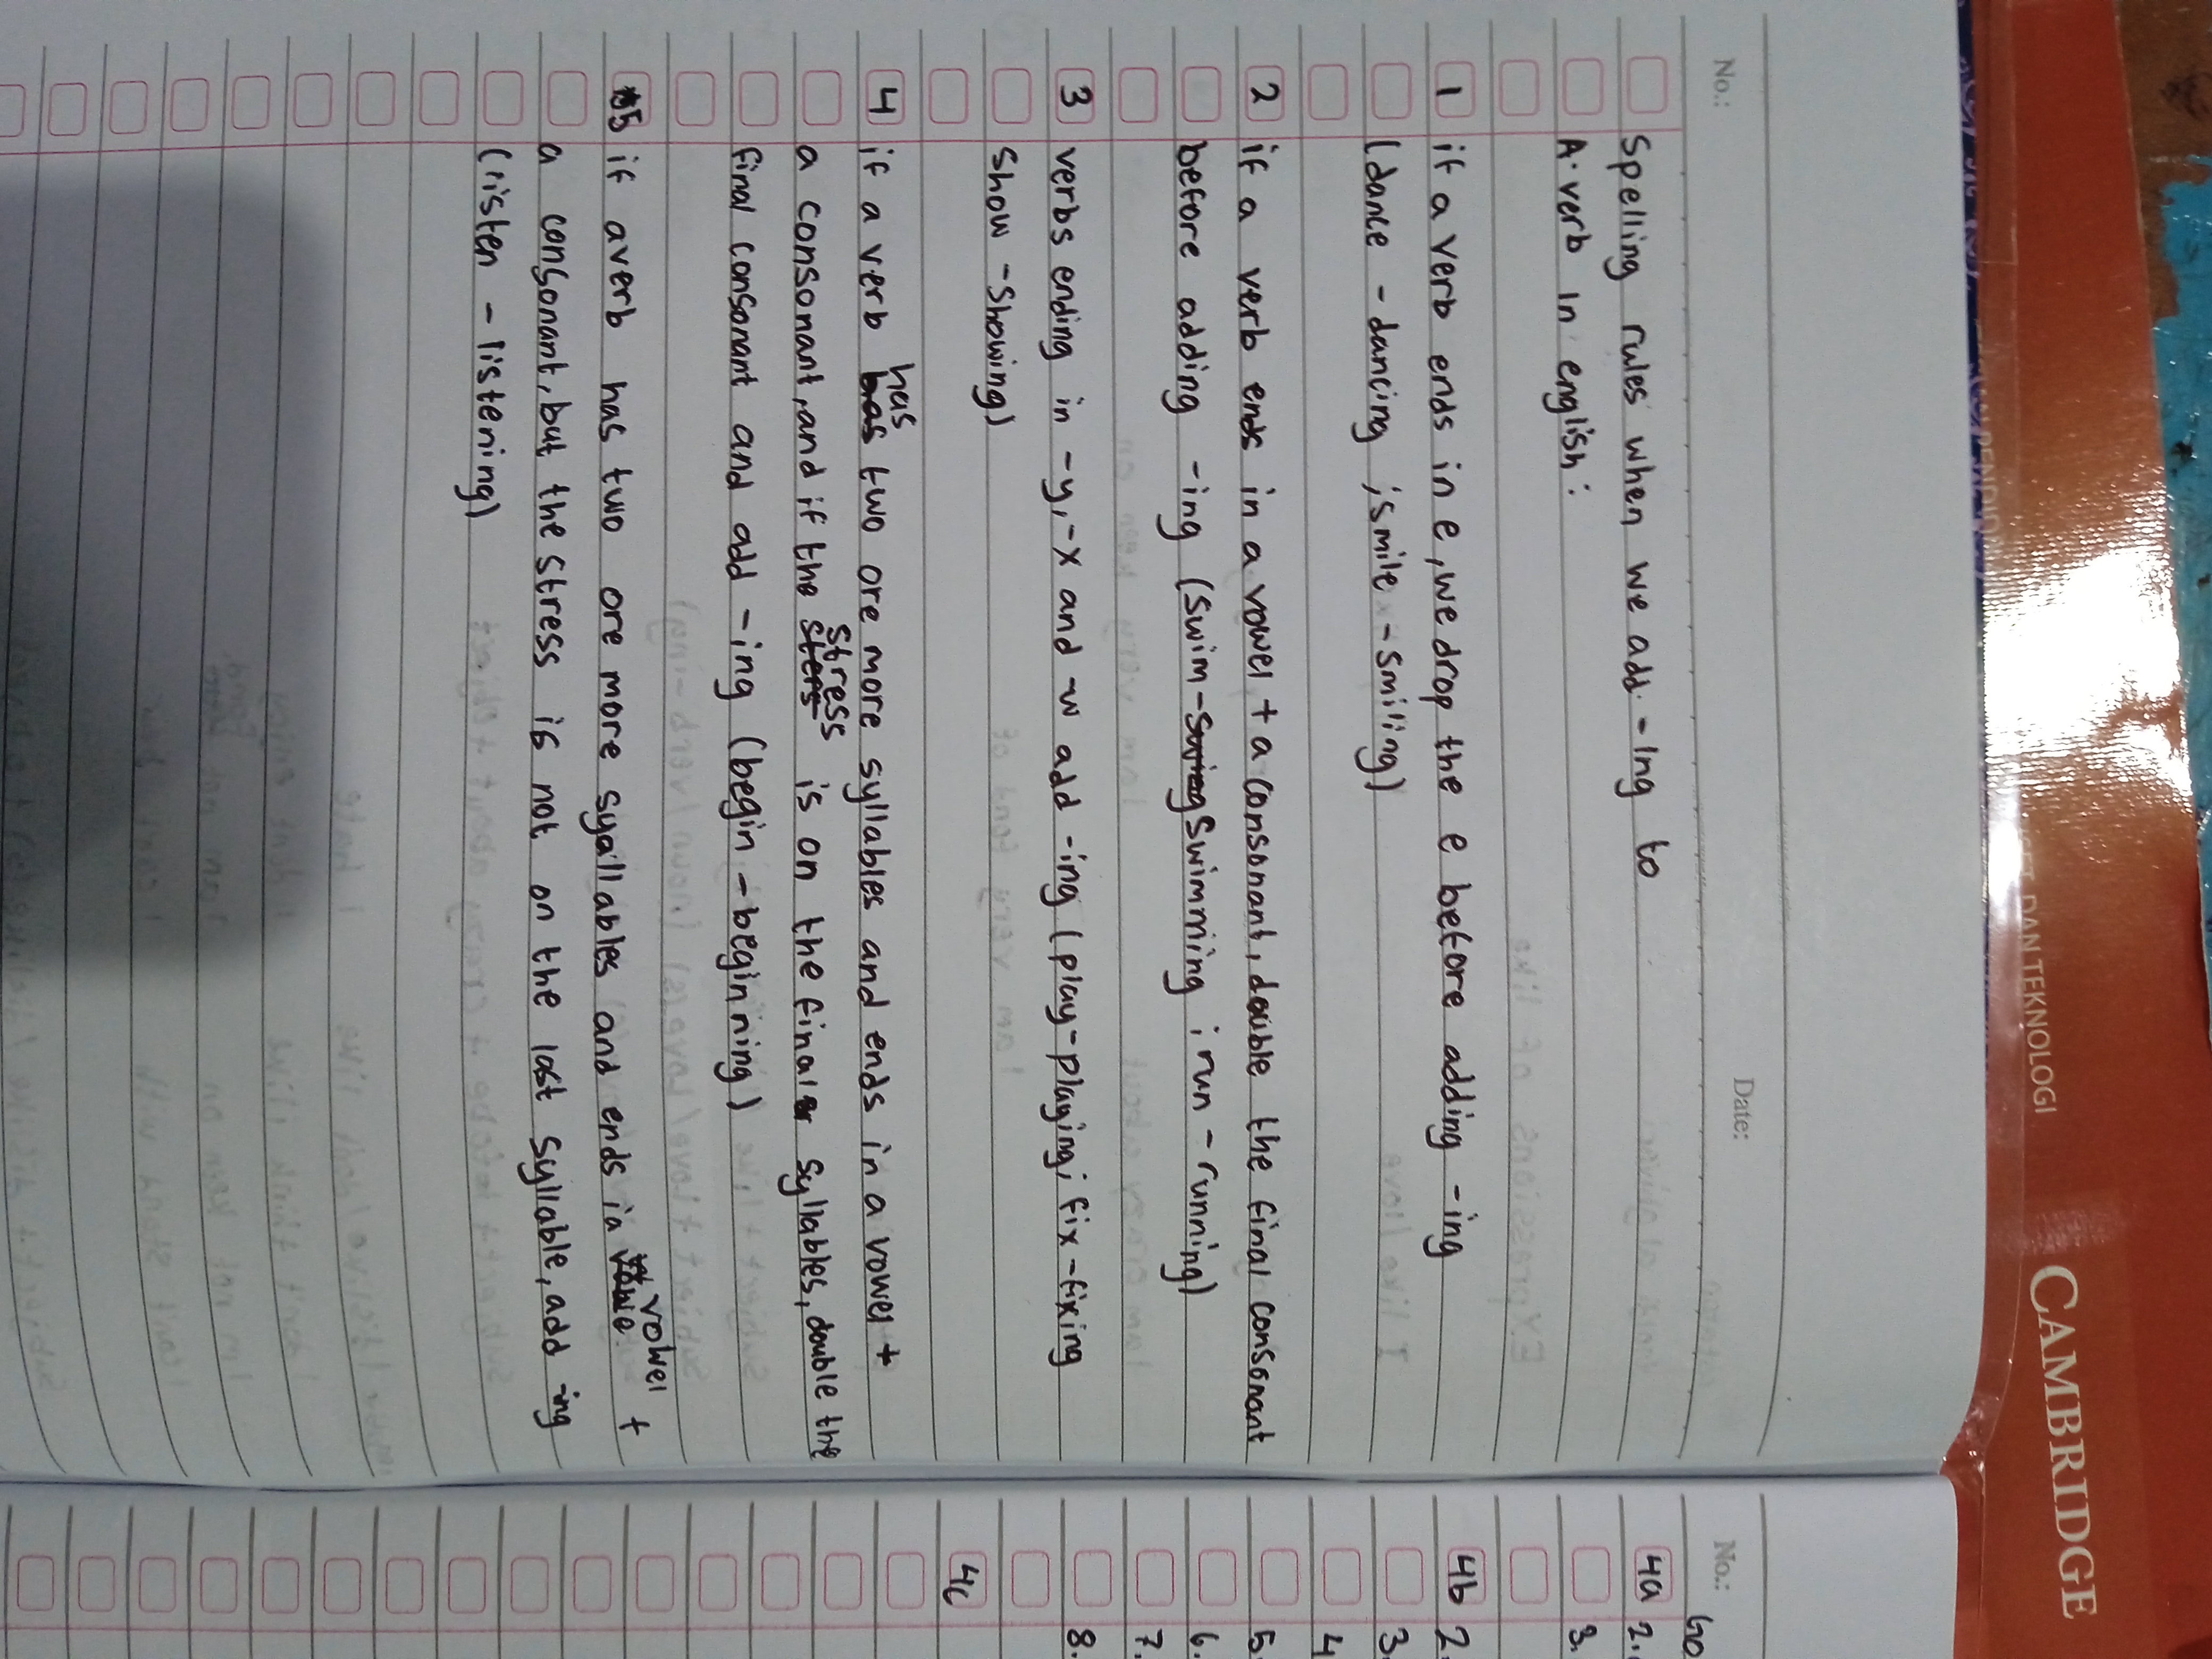 No.:
Date:
Spelling rules when we add -Ing to
A. verb In english:
1 if a verb ends in e, we drop the e before adding -ing
(dance - dancing ; smile - smiling)
2 if a verb ends in a vowel + a consonant, double the final consonant
before adding -ing (swim - swimming ; run - running)
3 verbs ending in -y, -x and -w add -ing (play - playing ; fix - fixing
show - showing)
4 if a verb has two ore more syllables and ends in a vowel +
a consonant, and if the stress is on the final syllables, double the
final consonant and add -ing (begin - beginning)
5 if a verb has two ore more syaillables and ends in a vowel +
a consonant, but the stress is not on the last syllable, add ing
(listen - listening)
No.:
4a 2.
3.
4b 2.
3.
4
5.
6.
7.
8.
4c
DAN TEKNOLOGI
CAMBRIDGE